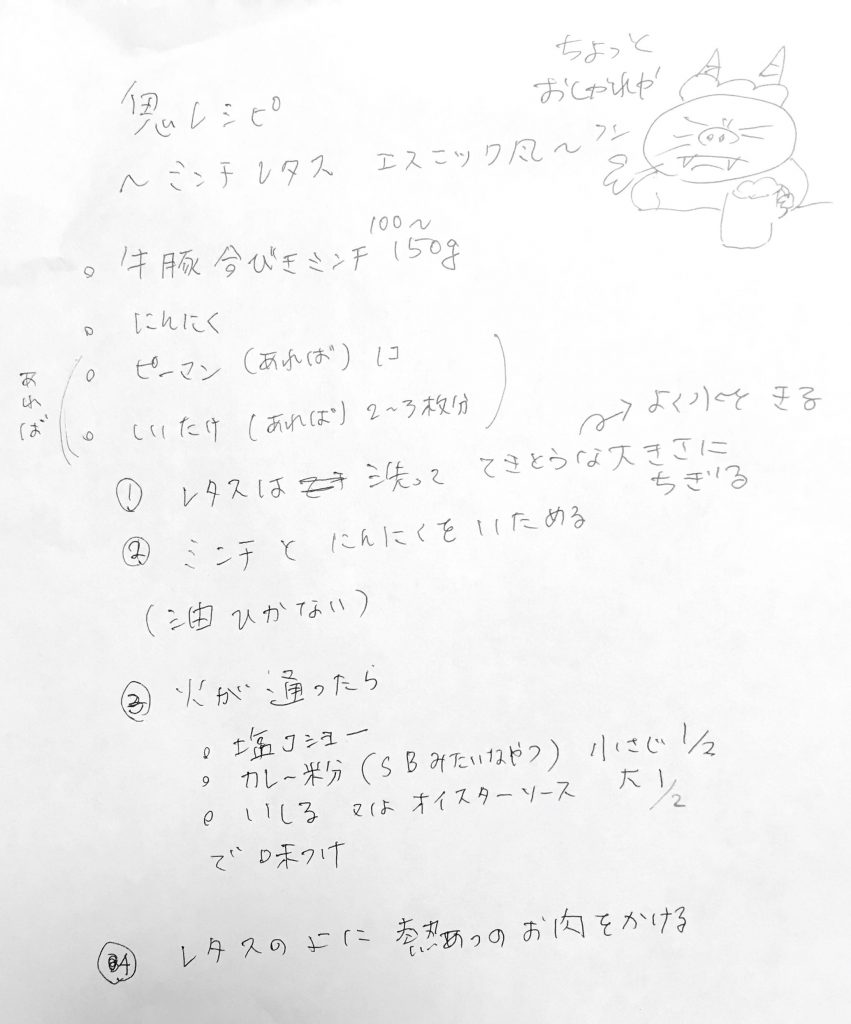 ちょっと
おしゃれやがな
鬼レシピ
〜ミンチレタス エスニック風〜
フン
100〜
・牛豚合びきミンチ 150g
・にんにく
・ピーマン (あれば) 1コ
・しいたけ (あれば) 2〜3枚分
あれば
→よく小さく きる
① レタスは 洗って てきとうな大きさに
ちぎる
② ミンチと にんにくを いためる
(油 ひかない)
③ 火が通ったら
・塩コショー
・カレー粉 (SBみたいなやつ) 小さじ 1/2
・いしる 又は オイスターソース 大 1/2
で味つけ
④ レタスの上に 熱あつの お肉をかける